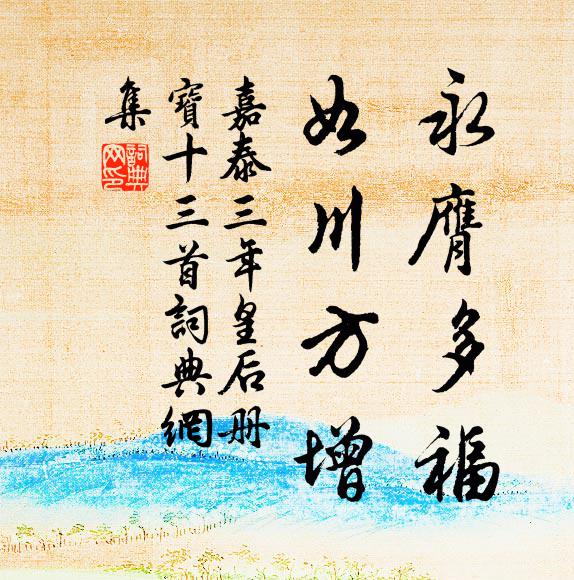 永膺多福
如川方增
嘉泰三年皇后册
寶十三首詞典網
集
詞典
网印